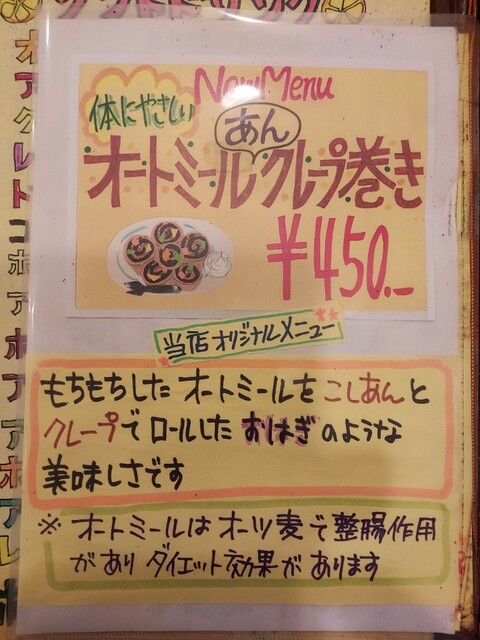 New Menu
体にやさしい
あん
オートミールクレープ巻き
¥450.-
当店オリジナルメニュー
もちもちした オートミールを こしあんと
クレープで ロールした おはぎのような
美味しさです
※ オートミールは オーツ麦で 整腸作用
があり ダイエット効果が あります